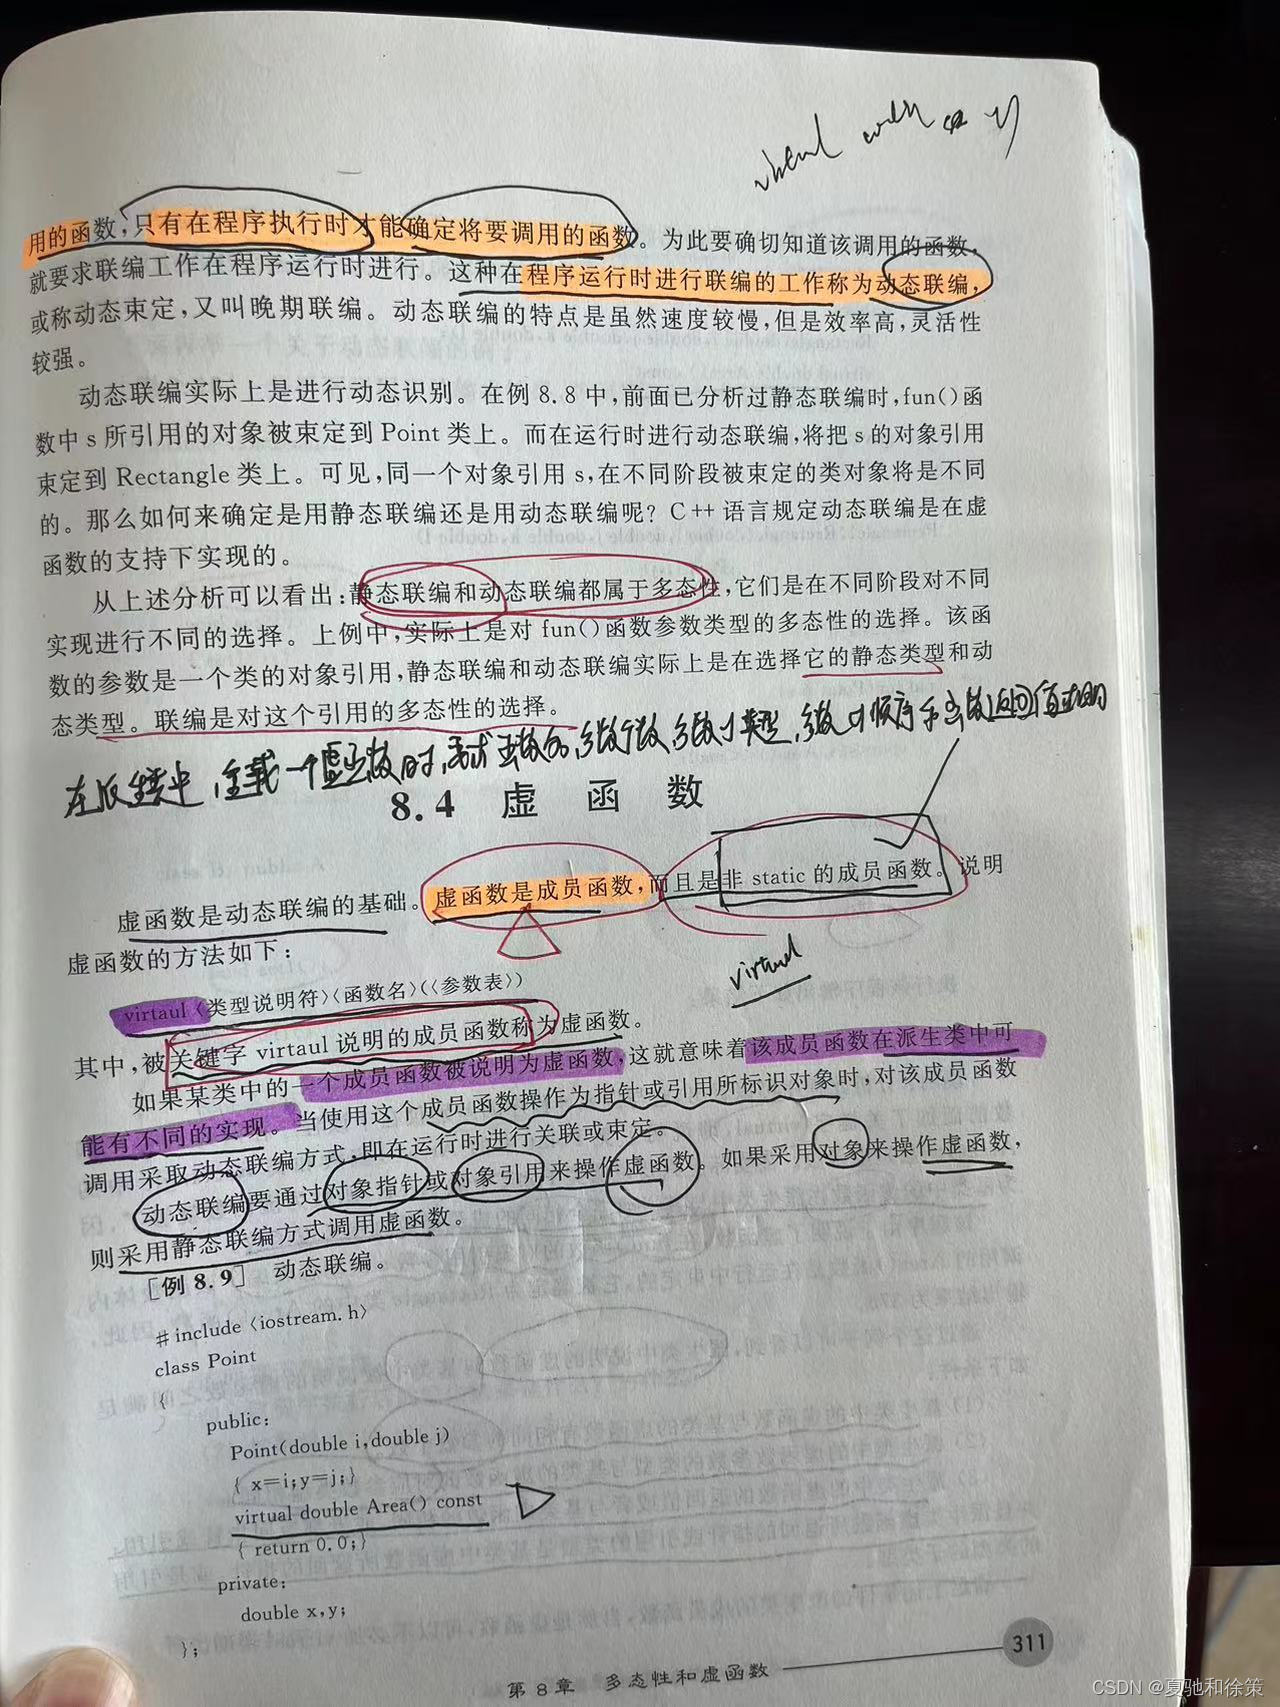 用的函数,只有在程序执行时才能确定将要调用的函数。为此要确切知道该调用的函数,
就要求联编工作在程序运行时进行。这种在程序运行时进行联编的工作称为动态联编,
或称动态束定,又叫晚期联编。动态联编的特点是虽然速度较慢,但是效率高,灵活性
较强。
动态联编实际上是进行动态识别。在例 8.8 中,前面已分析过静态联编时,fun()函
数中 s 所引用的对象被束定到 Point 类上。而在运行时进行动态联编,将把 s 的对象引用
束定到 Rectangle 类上。可见,同一个对象引用 s,在不同阶段被束定的类对象将是不同
的。那么如何来确定是用静态联编还是用动态联编呢? C++ 语言规定动态联编是在虚
函数的支持下实现的。
从上述分析可以看出:静态联编和动态联编都属于多态性,它们是在不同阶段对不同
实现进行不同的选择。上例中,实际上是对 fun()函数参数类型的多态性的选择。该函
数的参数是一个类的对象引用,静态联编和动态联编实际上是在选择它的静态类型和动
态类型。联编是对这个引用的多态性的选择。
8.4 虚 函 数
虚函数是动态联编的基础。虚函数是成员函数,而且是非 static 的成员函数。说明
虚函数的方法如下:
virtaul
virtaul〈类型说明符〉〈函数名〉(〈参数表〉)
其中,被关键字 virtaul 说明的成员函数称为虚函数。
如果某类中的一个成员函数被说明为虚函数,这就意味着该成员函数在派生类中可
能有不同的实现。当使用这个成员函数操作为指针或引用所标识对象时,对该成员函数
调用采取动态联编方式,即在运行时进行关联或束定。
动态联编要通过对象指针或对象引用来操作虚函数。如果采用对象来操作虚函数,
则采用静态联编方式调用虚函数。
[例 8.9] 动态联编。
#include 〈iostream.h〉
class Point
{
public:
Point(double i,double j)
{ x=i;y=j;}
virtual double Area() const
{ return 0.0;}
private:
double x,y;
};
第 8 章 多态性和虚函数
311
CSDN @夏驰和徐策